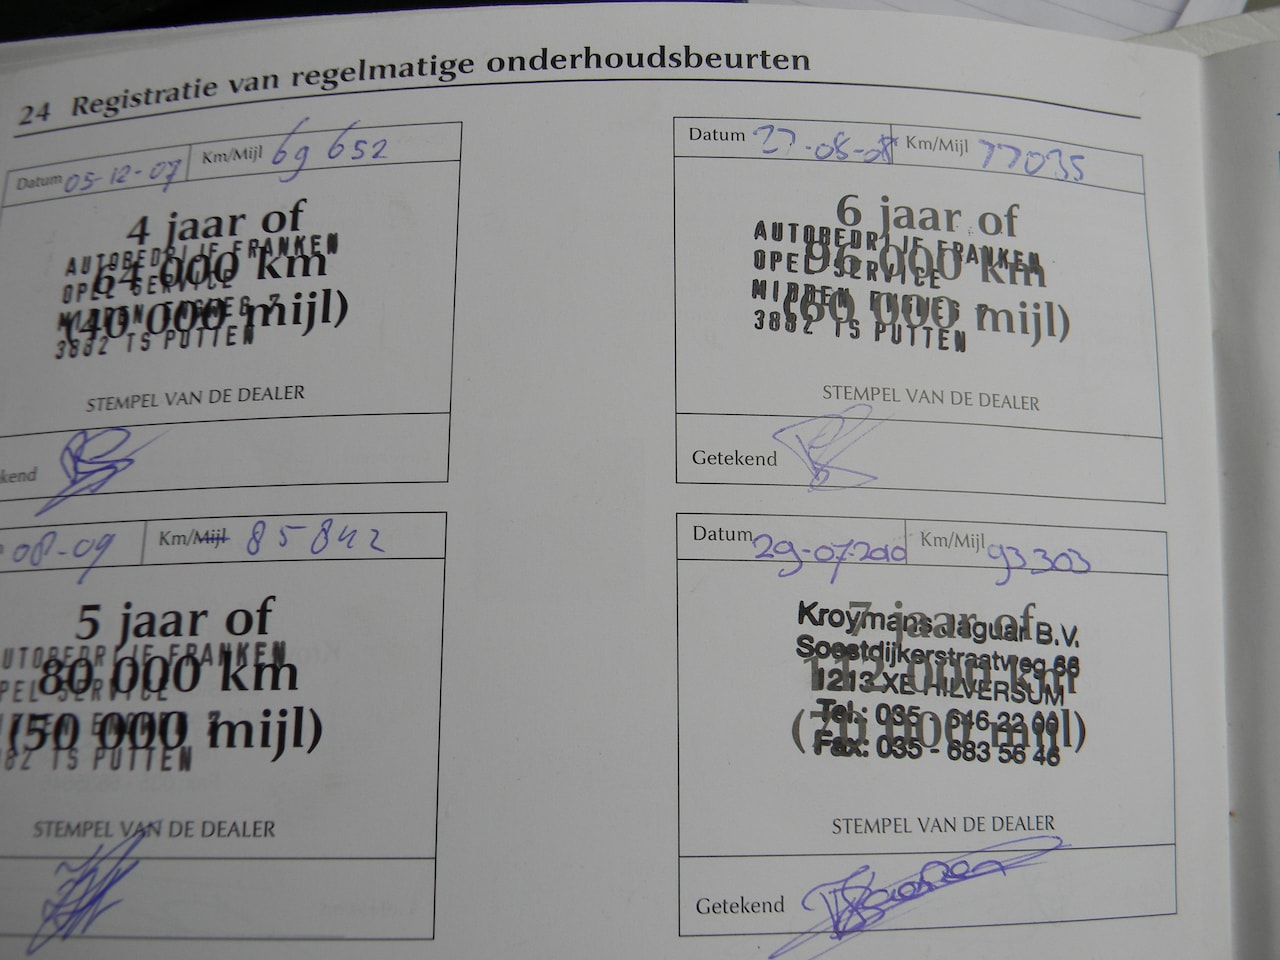 24 Registratie van regelmatige onderhoudsbeurten
Datum 05-12-07 Km/Mijl 69 652
4 jaar of
64 000 km
(40 000 mijl)
AUTOBEDRIJF FRANKEN
OPEL SERVICE
MIDDEN ENGWEG 7
3882 TS PUTTEN
STEMPEL VAN DE DEALER
kend
Datum 27-08-08 Km/Mijl 77035
6 jaar of
96 000 km
(60 000 mijl)
AUTOBEDRIJF FRANKEN
OPEL SERVICE
MIDDEN ENGWEG 7
3882 TS PUTTEN
STEMPEL VAN DE DEALER
Getekend
08-09 Km/Mijl 85842
5 jaar of
80 000 km
(50 000 mijl)
UTOBEDRIJF FRANKEN
PEL SERVICE
82 TS PUTTEN
STEMPEL VAN DE DEALER
Datum 29-07-2010 Km/Mijl 93303
7 jaar of
112 000 km
(70 000 mijl)
Kroymans Jaguar B.V.
Soestdijkerstraatweg 66
1213 XE HILVERSUM
Tel.: 035 - 646 22 00
Fax: 035 - 683 56 46
STEMPEL VAN DE DEALER
Getekend